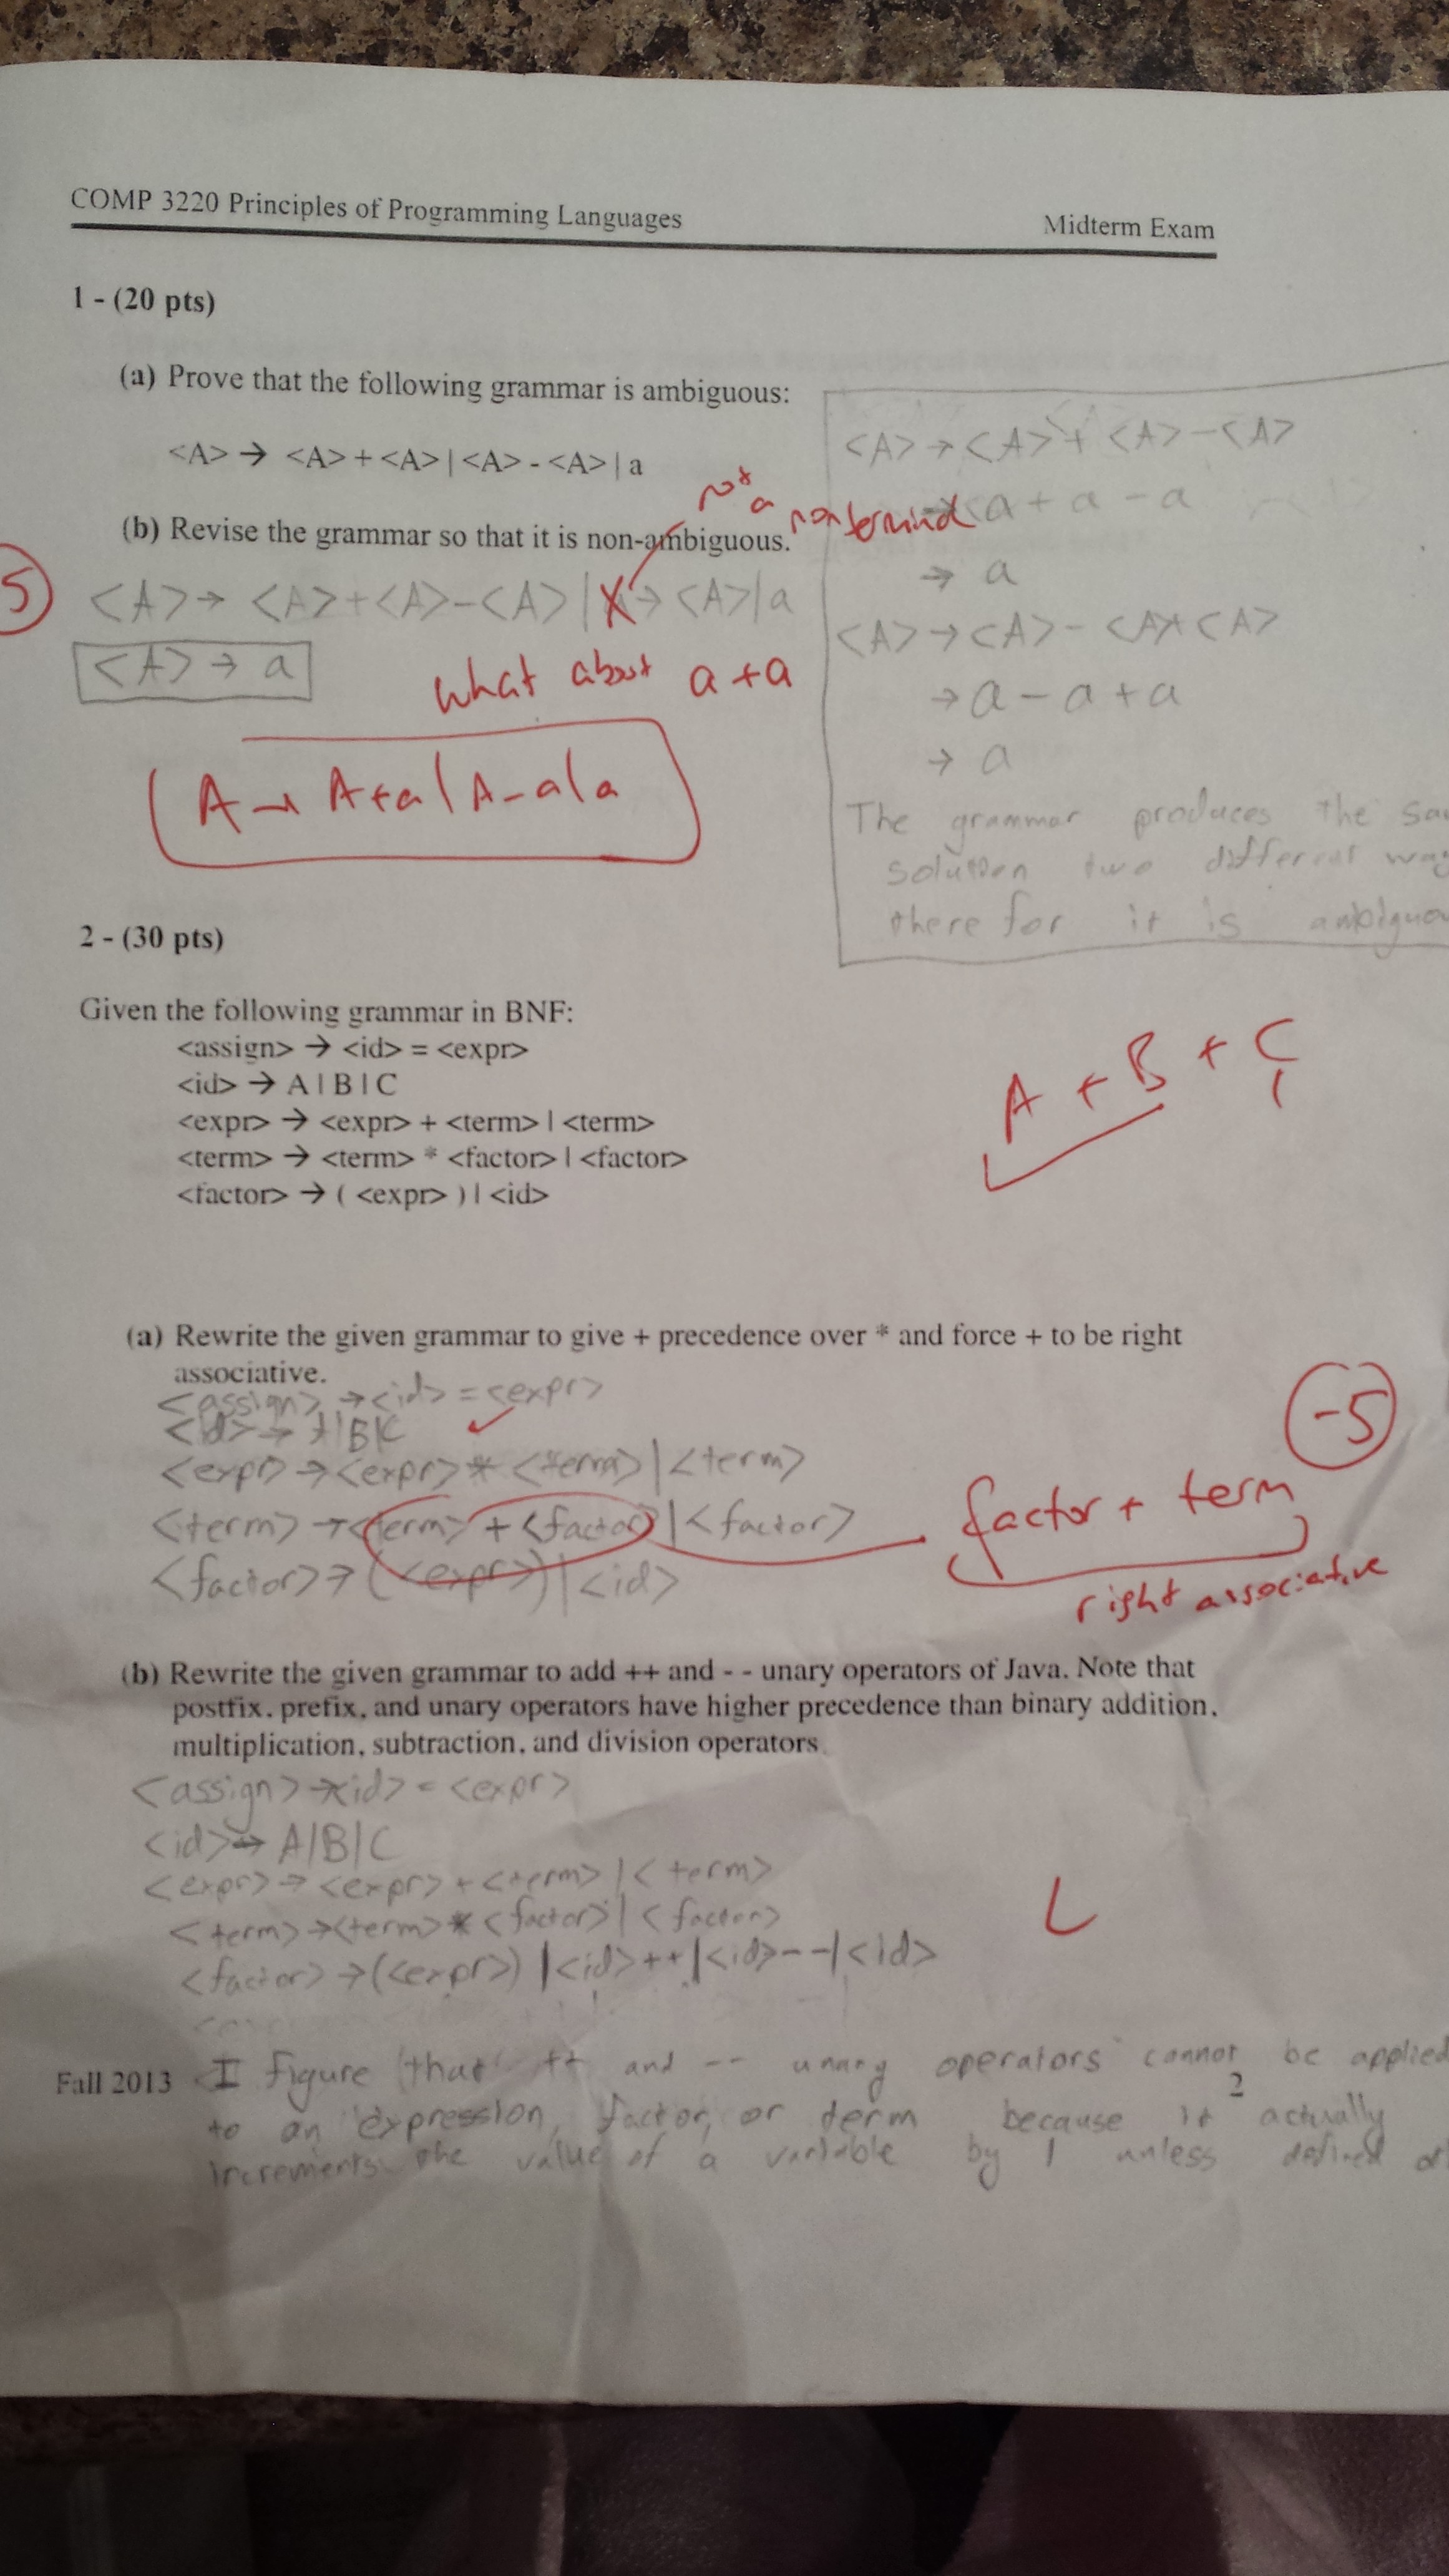 COMP 3220 Principles of Programming Languages
Midterm Exam
1 - (20 pts)
(a) Prove that the following grammar is ambiguous:
<A> → <A> + <A> | <A> - <A> | a
(b) Revise the grammar so that it is non-ambiguous.
not
a nonterminal
5
<A> → <A>+<A>-<A> | → <A>|a
<A> → a
what about a + a
A → A+a | A-a | a
<A> → <A> + <A> - <A>
a + a - a
→ a
<A> → <A> - <A>+<A>
→ a - a + a
→ a
The grammar produces the
solution two different
there for it is
2 - (30 pts)
Given the following grammar in BNF:
<assign> → <id> = <expr>
<id> → A | B | C
<expr> → <expr> + <term> | <term>
<term> → <term> * <factor> | <factor>
<factor> → ( <expr> ) | <id>
A + B + C
(a) Rewrite the given grammar to give + precedence over * and force + to be right
associative.
<assign> → <id> = <expr>
<id> → A|B|C
<expr> → <expr> * <term> | <term>
<term> → <term> + <factor> | <factor>
<factor> → (<expr>) | <id>
-5
factor + term
right associative
(b) Rewrite the given grammar to add ++ and - - unary operators of Java. Note that
postfix, prefix, and unary operators have higher precedence than binary addition,
multiplication, subtraction, and division operators.
<assign> → <id> = <expr>
<id> → A|B|C
<expr> → <expr> + <term> | <term>
<term> → <term> * <factor> | <factor>
<factor> → (<expr>) | <id>++ | <id>-- | <id>
I figure that ++ and -- unary operators cannot be applied
Fall 2013
2
to an expression, factor, or term because it actually
increments the value of a variable by 1 unless defined